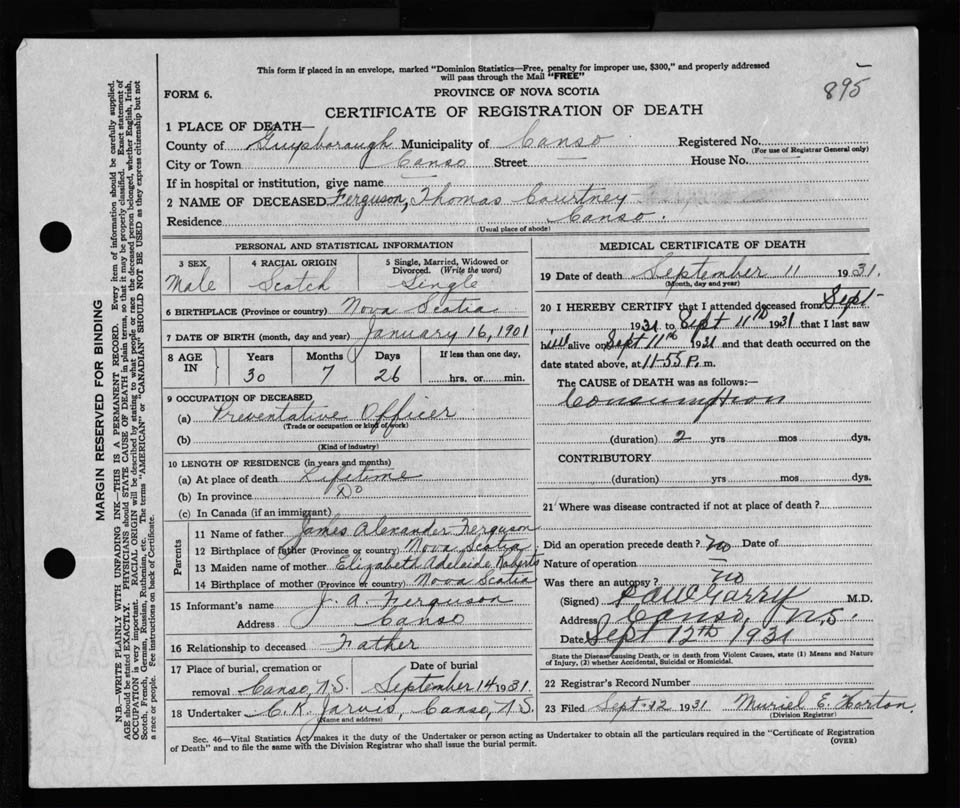 This form if placed in an envelope, marked "Dominion Statistics—Free, penalty for improper use, $300," and properly addressed
will pass through the Mail "FREE"
895
FORM 6.
PROVINCE OF NOVA SCOTIA
CERTIFICATE OF REGISTRATION OF DEATH
1 PLACE OF DEATH—
County of Guysborough Municipality of Canso Registered No.
(For use of Registrar General only)
City or Town Canso Street House No.
If in hospital or institution, give name
2 NAME OF DECEASED Ferguson, Thomas Courtney
Residence Canso.
(Usual place of abode)
PERSONAL AND STATISTICAL INFORMATION
3 SEX 4 RACIAL ORIGIN 5 Single, Married, Widowed or
Divorced. (Write the word)
Male Scotch Single
6 BIRTHPLACE (Province or country) Nova Scotia
7 DATE OF BIRTH (month, day and year) January 16, 1901
8 AGE IN Years Months Days If less than one day,
30 7 26 hrs. or min.
9 OCCUPATION OF DECEASED
(a) Preventative Officer
(Trade or occupation or kind of work)
(b)
(Kind of industry)
10 LENGTH OF RESIDENCE (in years and months)
(a) At place of death Lifetime
(b) In province Do
(c) In Canada (if an immigrant)
Parents
11 Name of father James Alexander Ferguson
12 Birthplace of father (Province or country) Nova Scotia
13 Maiden name of mother Elizabeth Adelaide Roberts
14 Birthplace of mother (Province or country) Nova Scotia
15 Informant's name J. A. Ferguson
Address Canso
16 Relationship to deceased Father
17 Place of burial, cremation or Date of burial
removal Canso, N.S. September 14 1931.
18 Undertaker C. K. Jarvis, Canso, N.S.
(Name and address)
MEDICAL CERTIFICATE OF DEATH
19 Date of death September 11 1931.
(Month, day and year)
20 I HEREBY CERTIFY that I attended deceased from Sept
1931 to Sept 11th 1931 that I last saw
him alive on Sept 11th 1931 and that death occurred on the
date stated above, at 11-55 P. m.
The CAUSE OF DEATH was as follows:—
Consumption
(duration) 2 yrs mos dys.
CONTRIBUTORY
(duration) yrs mos dys.
21 Where was disease contracted if not at place of death?
Did an operation precede death? no Date of
Nature of operation
Was there an autopsy? no
(Signed) Garry M.D.
Address Canso, N.S.
Date Sept 12th 1931
State the Disease causing Death, or in death from Violent Causes, state (1) Means and Nature
of Injury, (2) whether Accidental, Suicidal or Homicidal.
22 Registrar's Record Number
23 Filed Sept. 12 1931 Muriel E. Horton
(Division Registrar)
Sec. 46—Vital Statistics Act makes it the duty of the Undertaker or person acting as Undertaker to obtain all the particulars required in the "Certificate of Registration
of Death" and to file the same with the Division Registrar who shall issue the burial permit.
(OVER)
MARGIN RESERVED FOR BINDING
N.B.—WRITE PLAINLY WITH UNFADING INK—THIS IS A PERMANENT RECORD. Every item of information should be carefully supplied.
AGE should be stated EXACTLY. PHYSICIANS should STATE CAUSE OF DEATH in plain terms, so that it may be properly classified. Exact statement of
OCCUPATION is very important. RACIAL ORIGIN will be described by stating to what people or race the deceased person belonged, whether English, Irish,
Scotch, French, German, Russian, Ruthenian, etc. The terms "AMERICAN" or "CANADIAN" SHOULD NOT BE USED as they express citizenship but not
a race or people. See instructions on back of Certificate.